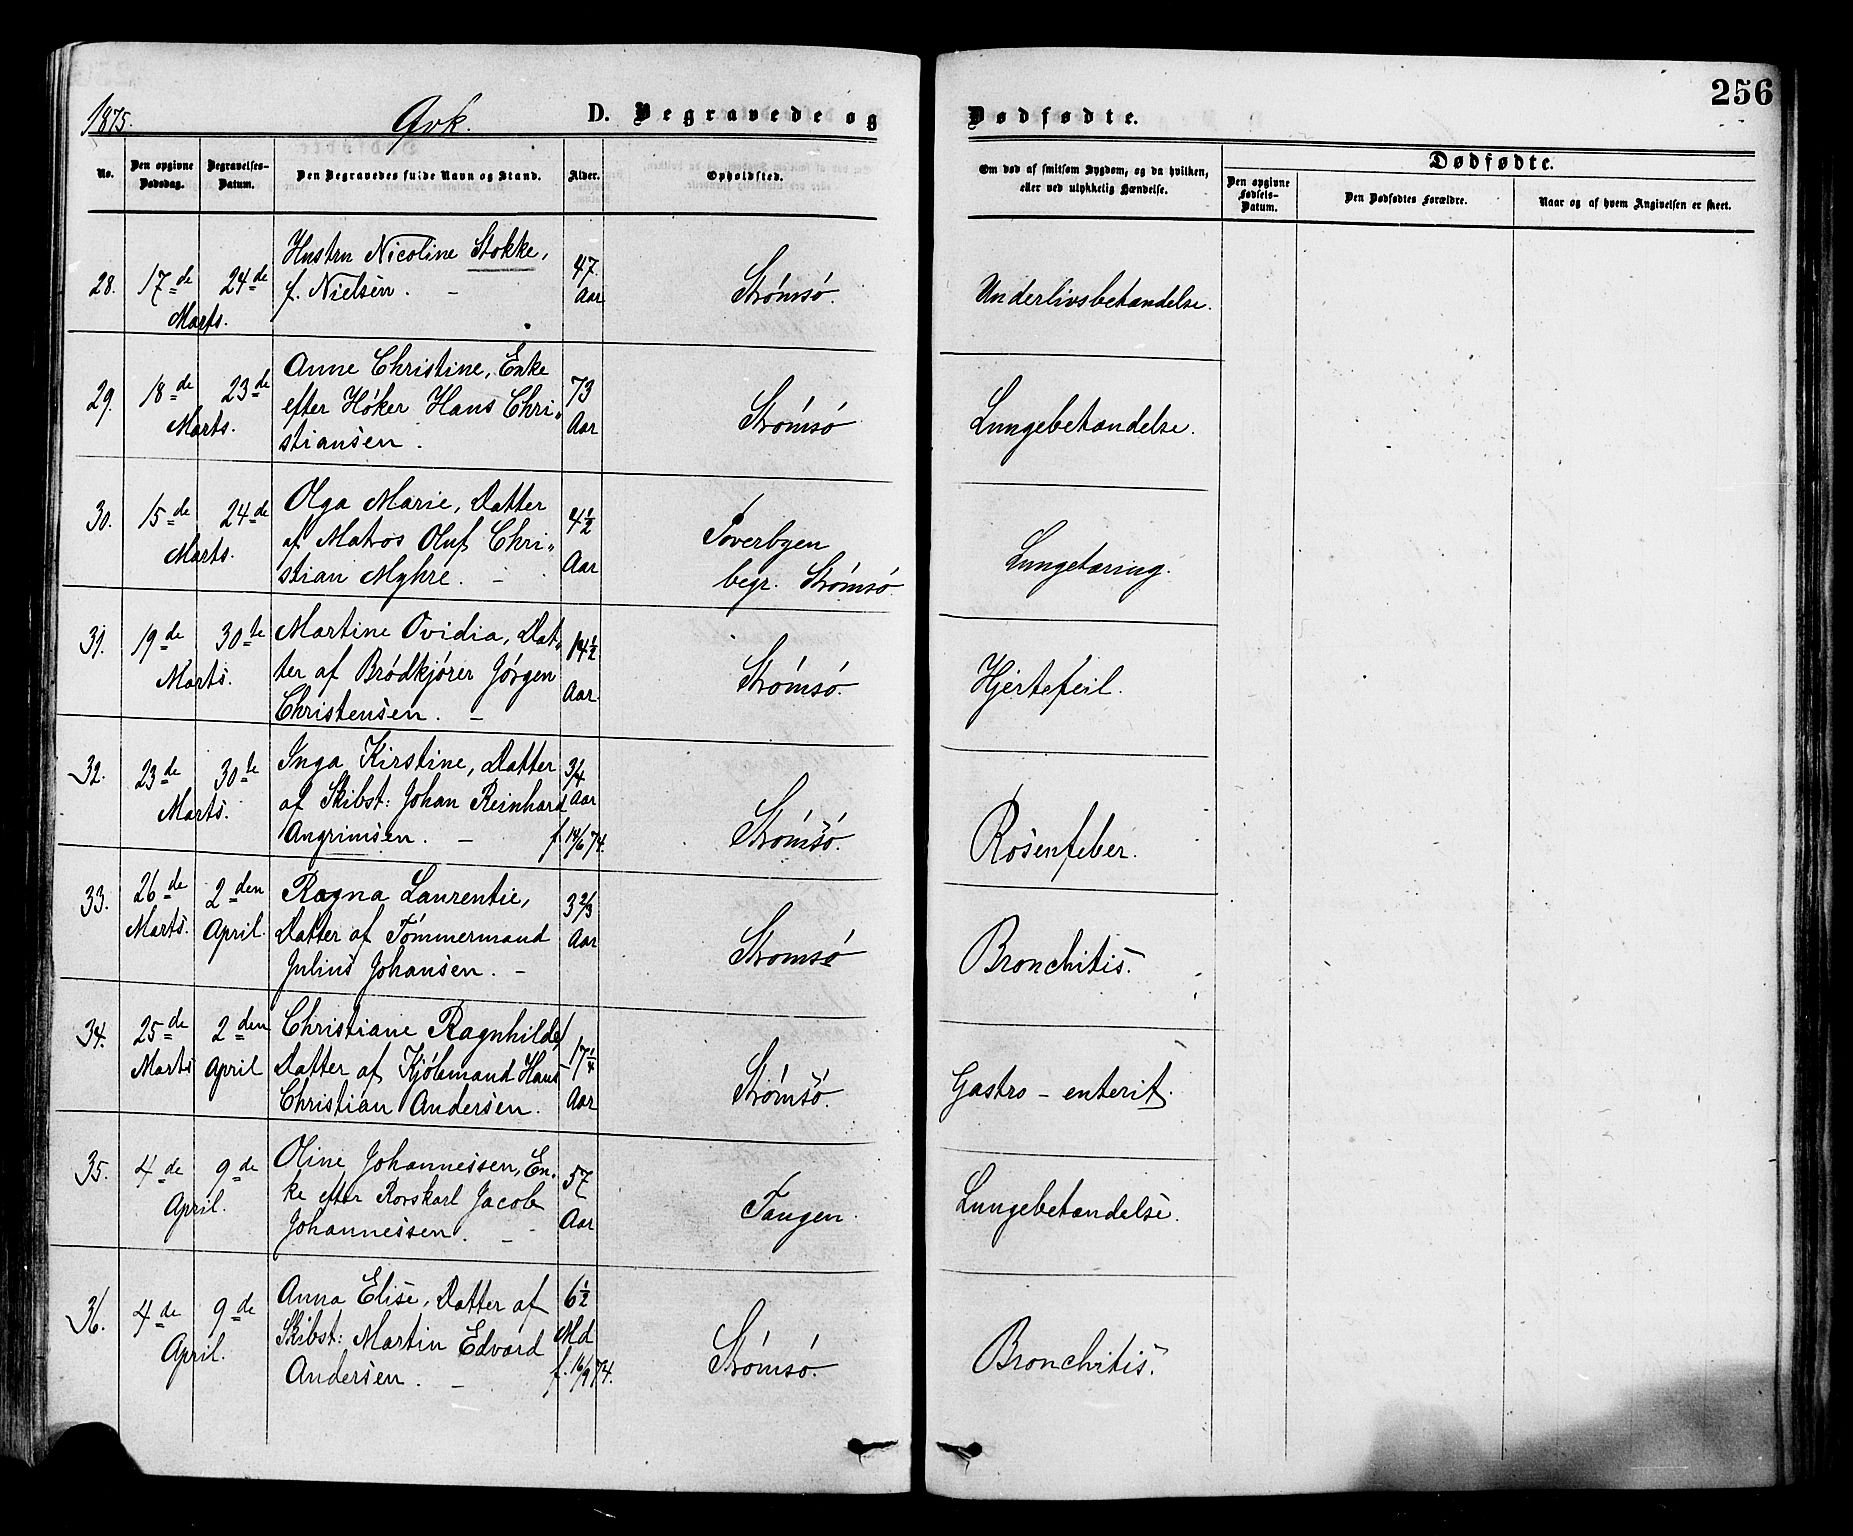 256
1875. Qvk. D. Begravede og Dødfødte.
No. Den opgivne Dødsdag. Begravelses-Datum. Den Begravedes fulde Navn og Stand. Alder. Opholdssted. Om død af smitsom Sygdom, og da hvilken, eller ved ulykkelig Hændelse. Dødfødte.
Den opgivne Fødsels-Datum. Den Dødfødtes Forældre. Naar og af hvem Angivelsen er skeet.
28. 17de 24de Marts.
Hustru Nicoline Stokke,
f. Nielsen. -
47 Aar
Strømsø.
Underlivsbetændelse.
29. 18de 23de Marts.
Anne Christine, Enke
efter Høker Hans Chri-
stiansen.
73 Aar
Strømsø
Lungebetændelse.
30. 15de 24de Marts.
Olga Marie, Datter
af Matros Oluf Chri-
stian Myhre. -
4½ Aar
Toverbyen
begr. Strømsø
Lungetæring.
31. 19de 30te Marts.
Martine Ovidia, Dat-
ter af Brødkjører Jørgen
Christensen. -
14½ Aar
Strømsø.
Hjertefeil.
32. 23de 30te Marts.
Inga Kirstine, Datter
af Skibst: Johan Reinhard
Angrimsen. -
3/4 Aar
f. 14/6 74.
Strømsø.
Rosenfeber.
33. 26de Marts. 2den April.
Ragna Laurentie,
Datter af Tømmermand
Julius Johansen. -
3 2/3 Aar
Strømsø
Bronchitis.
34. 25de Marts 2den April
Christiane Ragnhilde,
Datter af Kjøbmand Hans
Christian Andersen.
17¼ Aar
Strømsø.
Gastro-enterit.
35. 4de 9de April.
Oline Johannessen, En-
ke efter Rorskarl Jacob
Johannessen. -
57 Aar
Tangen.
Lungebetændelse.
36. 4de 9de April.
Anna Elise, Datter af
Skibst: Martin Edvard
Andersen. -
6½ Md
f. 16/9 74.
Strømsø.
Bronchitis.